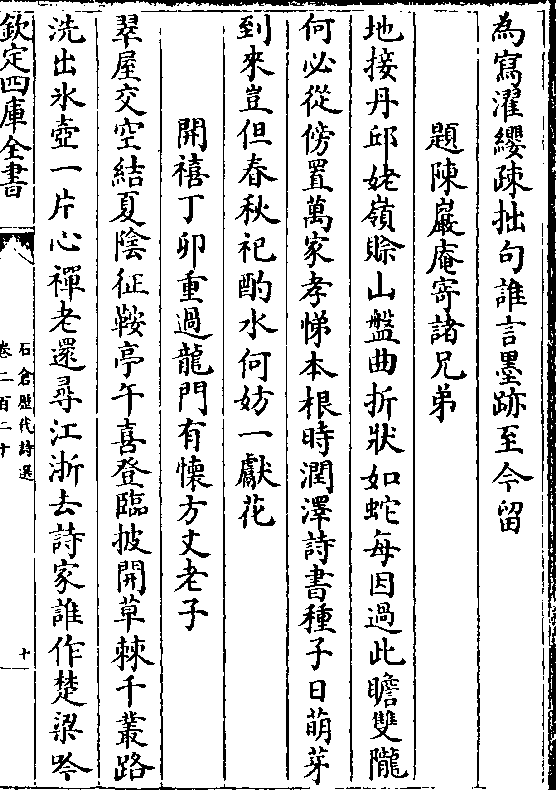 為寫濯纓疎拙句誰言墨跡至今留
題陳巖庵寄諸兄弟
地接丹邱姥嶺賒山盤曲折狀如蛇每因過此瞻雙隴
何必從傍置萬家孝悌本根時潤澤詩書種子日萌芽
到來豈但春秋祀酌水何妨一獻花
開禧丁卯重過龍門有懷方丈老子
翠屋交空結夏陰征鞍亭午喜登臨披開草棘千叢路
洗出氷壺一片心禪老還尋江浙去詩家誰作楚梁吟
欽定四庫全書
石倉歷代詩選
卷二百二十
十